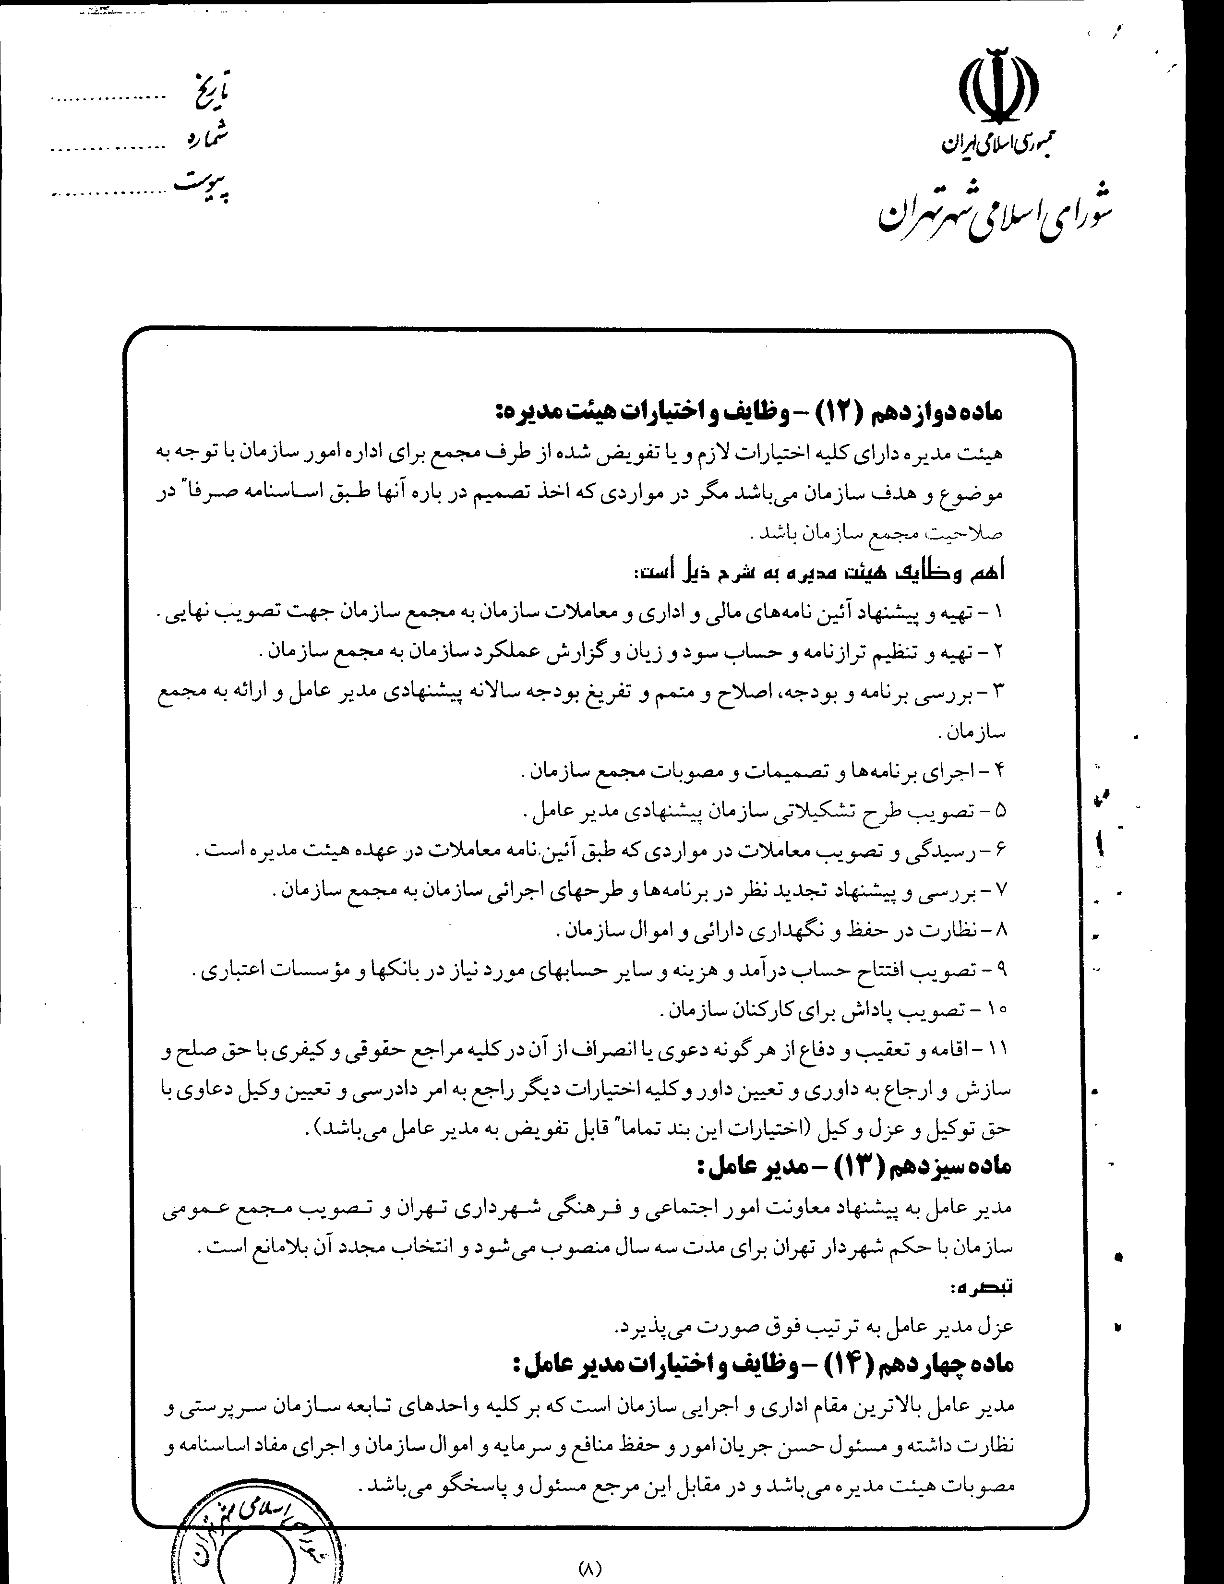 جمهوری اسلامی ایران
شورای اسلامی شهر تهران
تاریخ ................
شماره ................
پیوست ................
ماده دوازدهم (۱۲) – وظایف و اختیارات هیئت مدیره:
هیئت مدیره دارای کلیه اختیارات لازم و یا تفویض شده از طرف مجمع برای اداره امور سازمان با توجه به
موضوع و هدف سازمان می‌باشد مگر در مواردی که اخذ تصمیم در باره آنها طبق اساسنامه صرفا" در
صلاحیت مجمع سازمان باشد .
اهم وظایف هیئت مدیره به شرح ذیل است:
۱ – تهیه و پیشنهاد آئین نامه‌های مالی و اداری و معاملات سازمان به مجمع سازمان جهت تصویب نهایی .
۲ – تهیه و تنظیم ترازنامه و حساب سود و زیان و گزارش عملکرد سازمان به مجمع سازمان .
۳ – بررسی برنامه و بودجه، اصلاح و متمم و تفریغ بودجه سالانه پیشنهادی مدیر عامل و ارائه به مجمع
سازمان .
۴ – اجرای برنامه‌ها و تصمیمات و مصوبات مجمع سازمان .
۵ – تصویب طرح تشکیلاتی سازمان پیشنهادی مدیر عامل .
۶ – رسیدگی و تصویب معاملات در مواردی که طبق آئین نامه معاملات در عهده هیئت مدیره است .
۷ – بررسی و پیشنهاد تجدید نظر در برنامه‌ها و طرحهای اجرائی سازمان به مجمع سازمان .
۸ – نظارت در حفظ و نگهداری دارائی و اموال سازمان .
۹ – تصویب افتتاح حساب درآمد و هزینه و سایر حسابهای مورد نیاز در بانکها و مؤسسات اعتباری .
۱۰ – تصویب پاداش برای کارکنان سازمان .
۱۱ – اقامه و تعقیب و دفاع از هر گونه دعوی یا انصراف از آن در کلیه مراجع حقوقی و کیفری با حق صلح و
سازش و ارجاع به داوری و تعیین داور و کلیه اختیارات دیگر راجع به امر دادرسی و تعیین وکیل دعاوی با
حق توکیل و عزل وکیل (اختیارات این بند تماما" قابل تفویض به مدیر عامل می‌باشد).
ماده سیزدهم (۱۳) – مدیر عامل :
مدیر عامل به پیشنهاد معاونت امور اجتماعی و فرهنگی شهرداری تهران و تصویب مجمع عمومی
سازمان با حکم شهردار تهران برای مدت سه سال منصوب می‌شود و انتخاب مجدد آن بلامانع است .
تبصره:
عزل مدیر عامل به ترتیب فوق صورت می‌پذیرد.
ماده چهاردهم (۱۴) – وظایف و اختیارات مدیر عامل :
مدیر عامل بالاترین مقام اداری و اجرایی سازمان است که بر کلیه واحدهای تابعه سازمان سرپرستی و
نظارت داشته و مسئول حسن جریان امور و حفظ منافع و سرمایه و اموال سازمان و اجرای مفاد اساسنامه و
مصوبات هیئت مدیره می‌باشد و در مقابل این مرجع مسئول و پاسخگو می‌باشد .
شورای اسلامی شهر تهران
(۸)